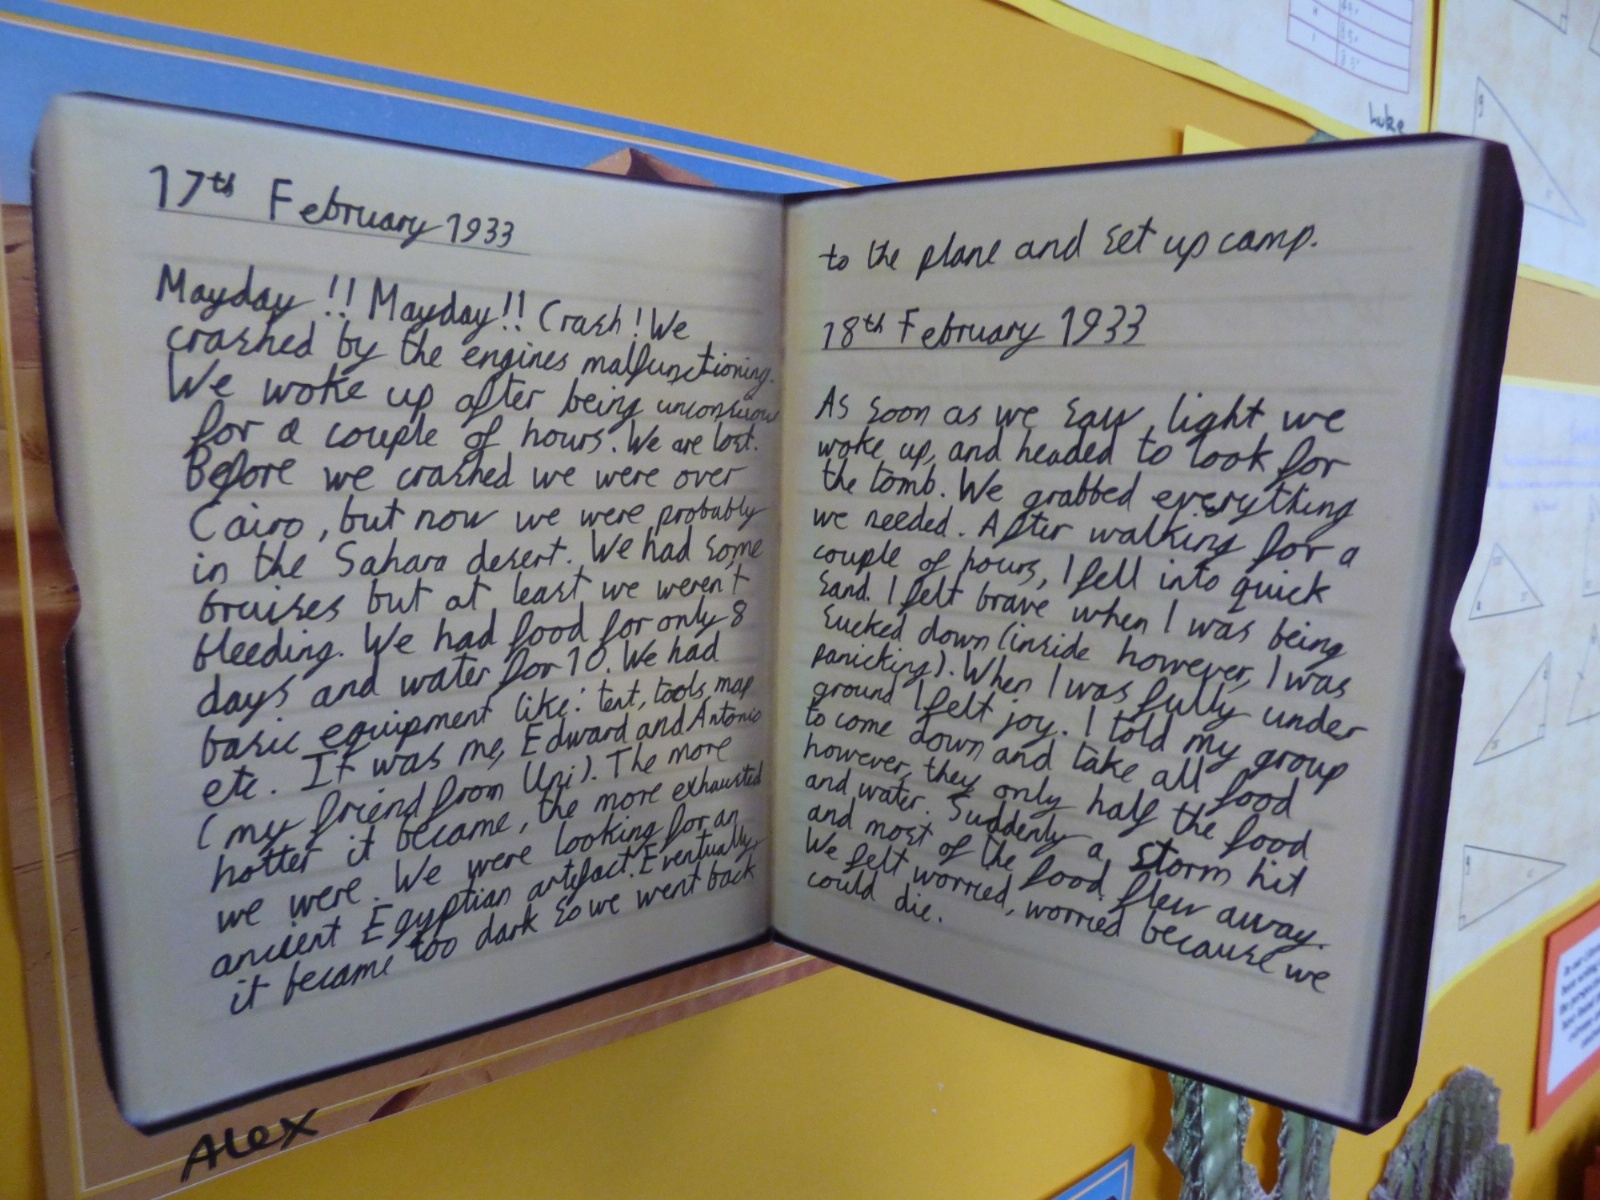 17th February 1933
Mayday !! Mayday!! Crash! We
crashed by the engines malfunctioning.
We woke up after being
for a couple of hours. We are lost.
Before we crashed we were over
Cairo, but now we were probably
in the Sahara desert. We had some
bruises but at least we weren't
bleeding. We had food for only 8
days and water for 10. We had
basic equipment like: tent, tools, map
etc. It was me, Edward and Antonio
(my friend from Uni). The more
hotter it became, the more exhausted
we were. We were looking for an
ancient Egyptian artifact. Eventually
it became too dark so we went back
to the plane and set up camp.
18th February 1933
As soon as we saw light we
woke up, and headed to look for
the tomb. We grabbed everything
we needed. After walking for a
couple of hours, I fell into quick
sand. I felt brave when I was being
sucked down (inside however, I was
panicking). When I was fully under
ground I felt joy. I told my group
to come down and take all food
however, they only half the food
and water. Suddenly a storm hit
and most of the food flew away.
We felt worried, worried because we
could die.
Alex
Luke